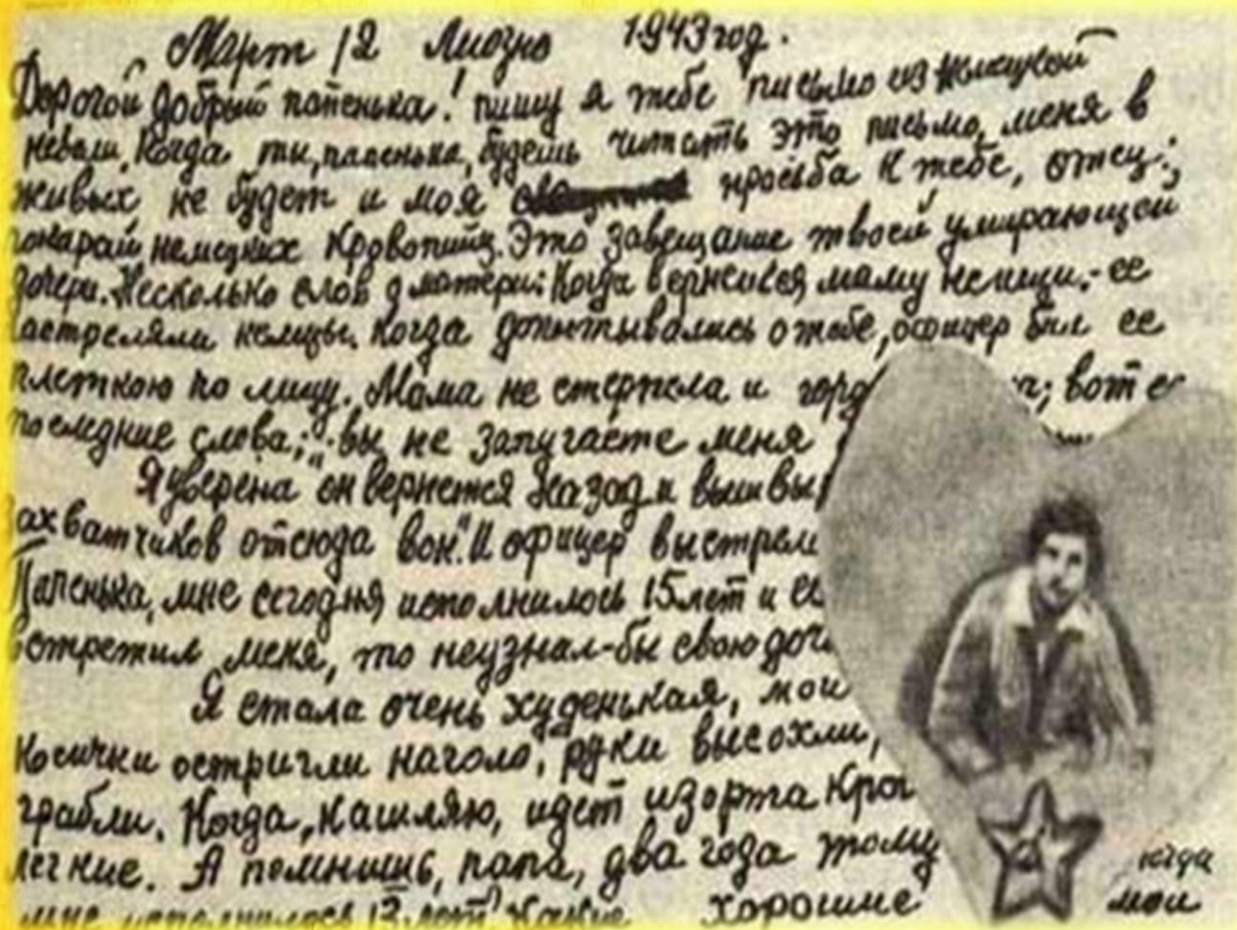 Март 12 Лиозно 1943 год.
Дорогой добрый папенька! пишу я тебе письмо из немецкой
неволи. Когда ты, папенька, будешь читать это письмо, меня в
живых не будет и моя просьба к тебе, отец:
покарай немецких кровопийц. Это завещание твоей умирающей
дочери. Несколько слов о матери: Когда вернешься, маму не ищи.- ее
растреляли немцы. Когда допытывались о тебе, офицер бил ее
плеткою по лицу. Мама не стерпела и горд вот ее
последние слова; "вы не запугаете меня
Я уверена он вернется назад и вышвыр
захватчиков отсюда вон." И офицер выстрели
Папенька, мне сегодня исполнилось 15 лет и ес
встретил меня, то неузнал-бы свою доч
Я стала очень худенькая, мои
Косички остригли наголо, руки высохли,
грабли. Когда, кашляю, идет изорта кров
легкие. А помнишь, папа, два года тому
когда
мне исполнилось 13 лет? Какие хорошие мои